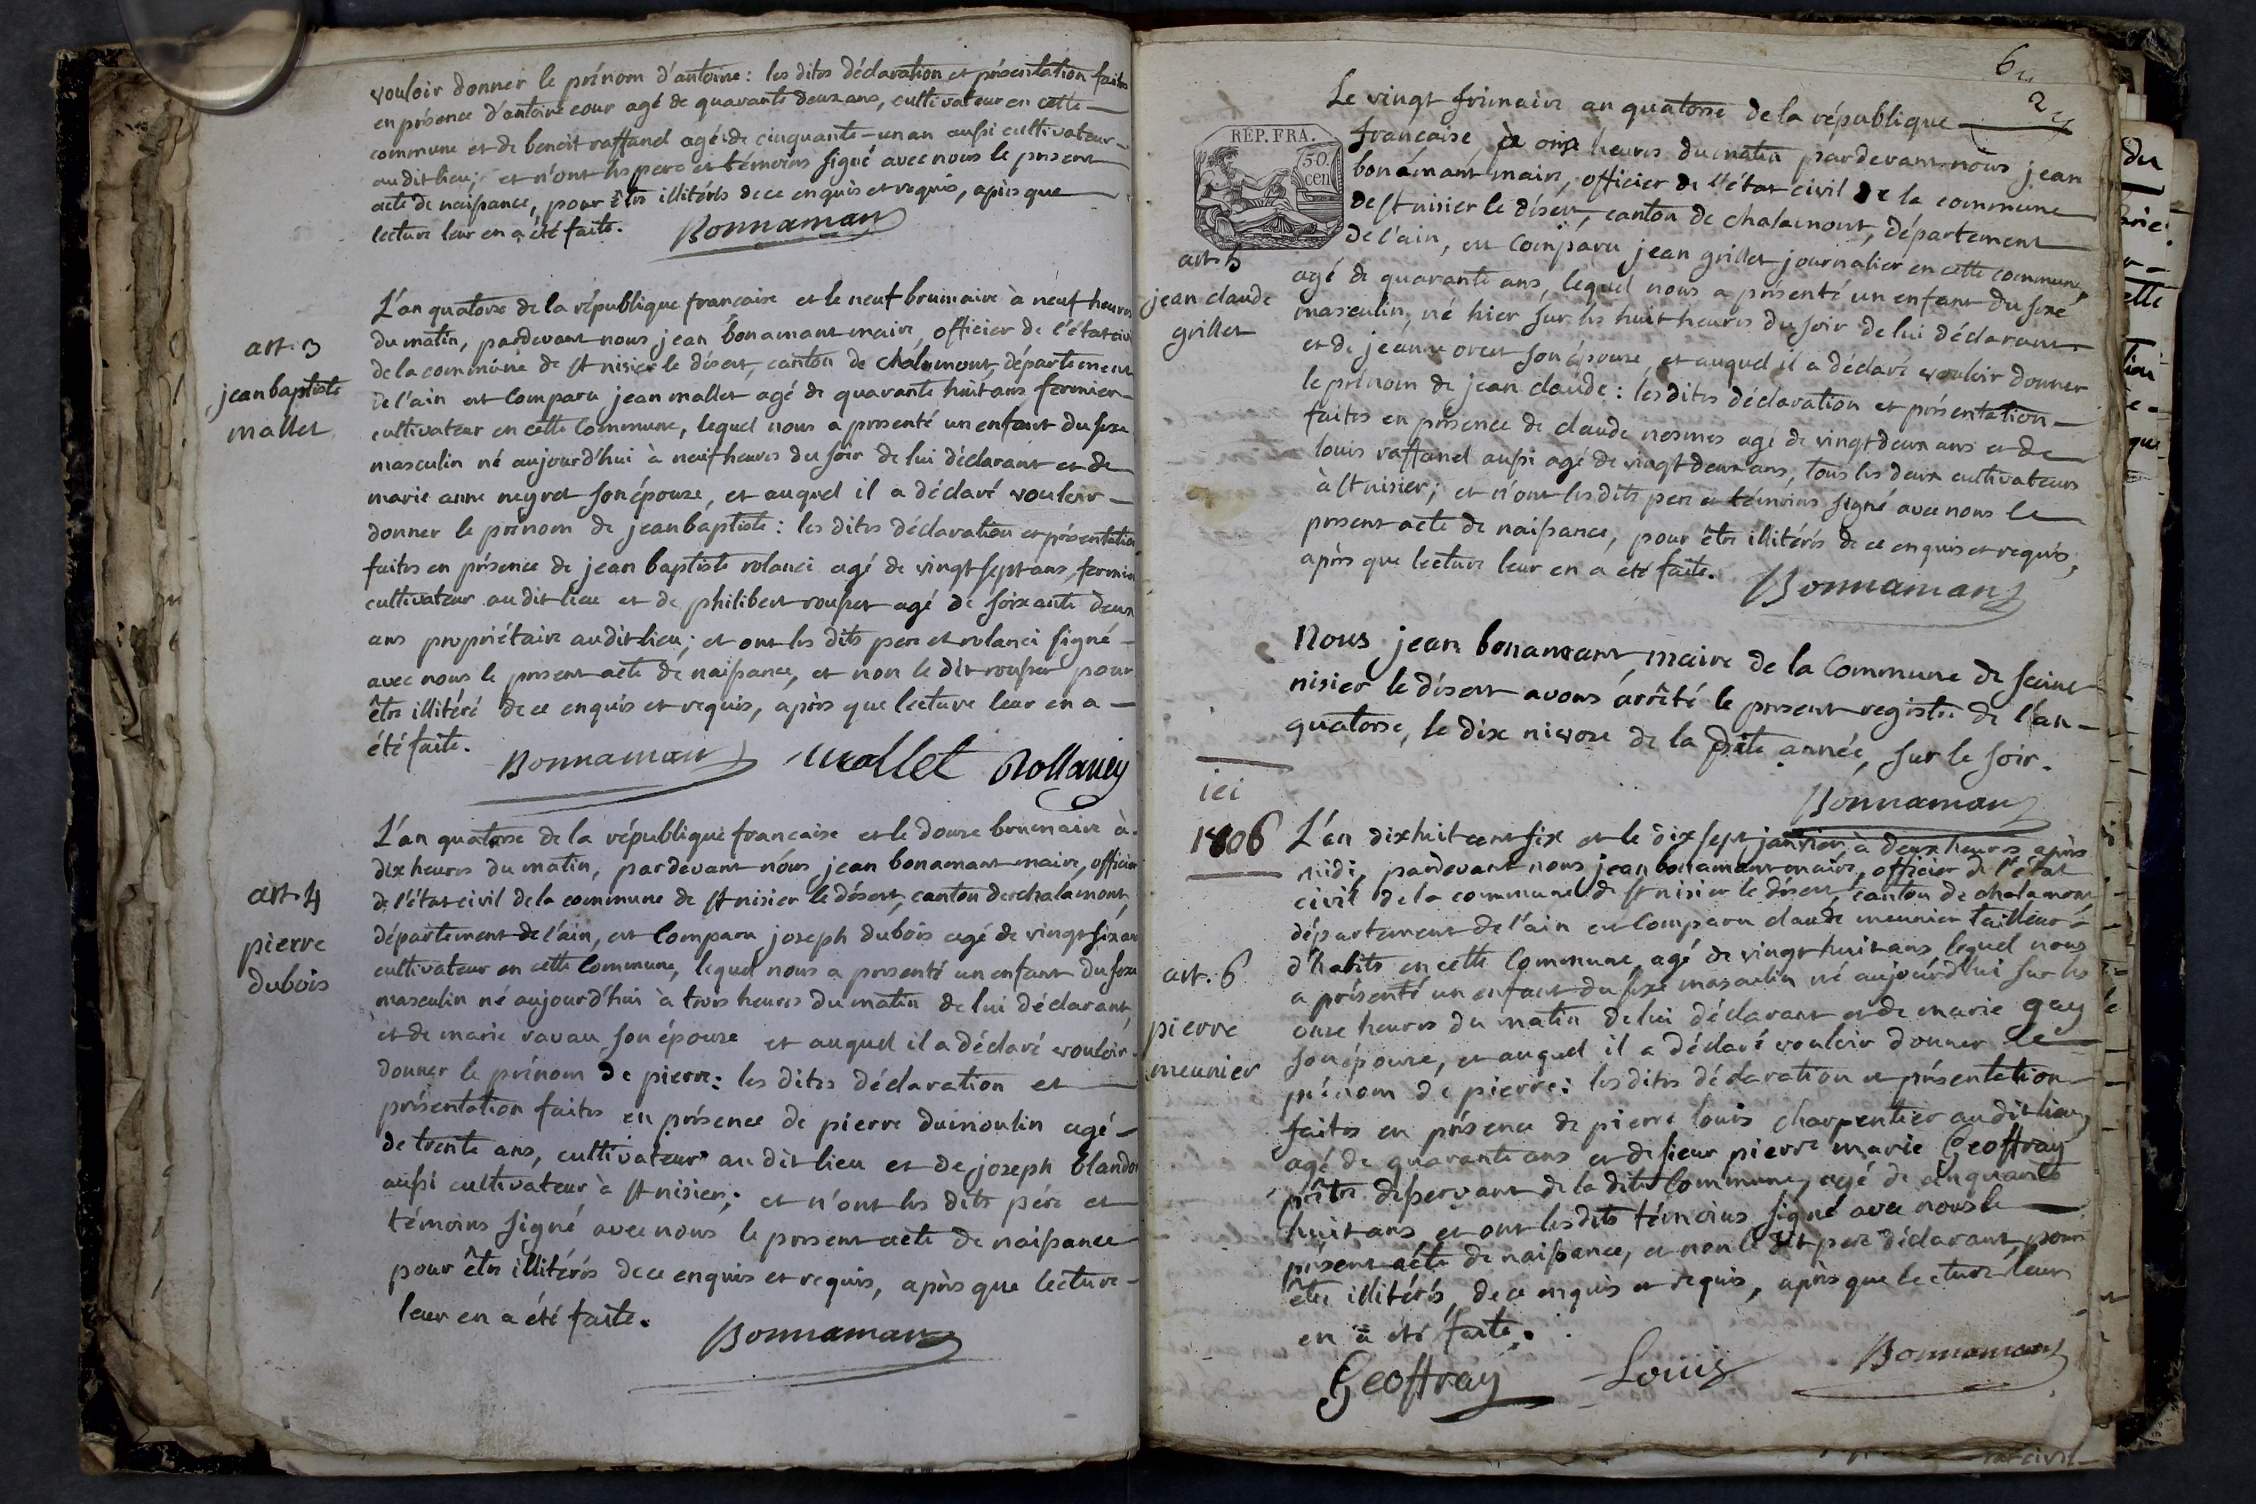 vouloir donner le prénom d'antoine : les dites déclaration et présentation faites
en présence d'antoine cour agé de quarante deux ans, cultivateur en cette
commune et de benoit raffanel agé de cinquante-un an aussi cultivateur
au dit lieu, et n'ont les pere et témoins signé avec nous le present
acte de naissance, pour être illitérés de ce enquis et requis, après que
lecture leur en a été faite. Bonnamant
art. 3
jean baptiste
mallet
L'an quatorze de la république francaise et le neuf brumaire à neuf heures
du matin, pardevant nous jean bonamant maire, officier de l'état civil
de la commune de st nisier le désert, canton de chalamont, département
de l'ain est comparu jean mallet agé de quarante huit ans fermier
cultivateur en cette commune, lequel nous a presenté un enfant du sexe
masculin né aujourd'hui à neuf heures du soir de lui déclarant et de
marie anne negret son épouze, et auquel il a déclaré vouloir
donner le prénom de jean baptiste : les dites déclaration et présentation
faites en présence de jean baptiste rolanci agé de vingt sept ans, fermier
cultivateur au dit lieu et de philibert rousset agé de soixante deux
ans propriétaire au dit lieu ; et ont les dits pere et rolanci signé
avec nous le present acte de naissance, et non le dit rousset pour
être illitéré de ce enquis et requis, après que lecture leur en a
été faite.
Bonnamant mallet Rollancy
art. 4
pierre
dubois
L'an quatorze de la république francaise et le douze brumaire à
dix heures du matin, pardevant nous jean bonamant maire, officier
de l'état civil de la commune de st nisier le désert, canton de chalamont,
département de l'ain, est comparu joseph dubois agé de vingt six ans
cultivateur en cette commune, lequel nous a presenté un enfant du sexe
masculin né aujourd'hui à trois heures du matin de lui déclarant
et de marie ravau son épouze et auquel il a déclaré vouloir
donner le prénom de pierre : les dites déclaration et
présentation faites en présence de pierre dumoulin agé
de trente ans, cultivateur au dit lieu et de joseph blandon
aussi cultivateur à st nisier ; et n'ont les dits pére et
témoins signé avec nous le present acte de naissance
pour être illitérés de ce enquis et requis, après que lecture
leur en a été faite.
Bonnamant
6
2
REP. FRA.
50.
cen
art. 5
jean claude
grillet
Le vingt frimaire an quatorze de la république
francaise, à onze heures du matin pardevant nous jean
bonamant maire, officier de l'état civil de la commune
de st nisier le désert, canton de chalamont, département
de l'ain, est comparu jean grillet journalier en cette commune,
agé de quarante ans, lequel nous a présenté un enfant du sexe
masculin, né hier sur les huit heures du soir de lui déclarant
et de jeanne oret son épouze, et auquel il a déclaré vouloir donner
le prénom de jean claude : les dites déclaration et présentation
faites en présence de claude nesmes agé de vingt deux ans et de
louis raffanel aussi agé de vingt deux ans, tous les deux cultivateurs
à st nisier ; et n'ont les dits pere et témoins signé avec nous le
present acte de naissance, pour être illitérés de ce enquis et requis,
après que lecture leur en a été faite. Bonnamant
Nous jean bonamant maire de la commune de saint
nisier le désert avons arrêté le present registre de l'an
quatorze, le dix nivoze de la dite année, sur le soir.
Bonnamant
ici
1806
art. 6
pierre
meunier
L'an dix huit cent six et le dix sept janvier à deux heures après
midi, pardevant nous jean bonamant maire, officier de l'état
civil de la commune de st nisier le désert, canton de chalamont,
département de l'ain est comparu claude meunier tailleur
d'habits en cette commune agé de vingt huit ans lequel nous
a présenté un enfant du sexe masculin né aujourd'hui sur les
onze heures du matin de lui déclarant et de marie gay
son épouze, et auquel il a déclaré vouloir donner le
prénom de pierre : les dites déclaration et présentation
faites en présence de pierre louis charpentier au dit lieu
agé de quarante ans et de sieur pierre marie Geoffray
prêtre desservant de la dite commune, agé de cinquante
huit ans, et ont les dits témoins signé avec nous le
présent acte de naissance, et non le dit pere déclarant, pour
être illitérés, de ce enquis et requis, après que lecture leur
en a été faite.
Geoffray Louis Bonnamant